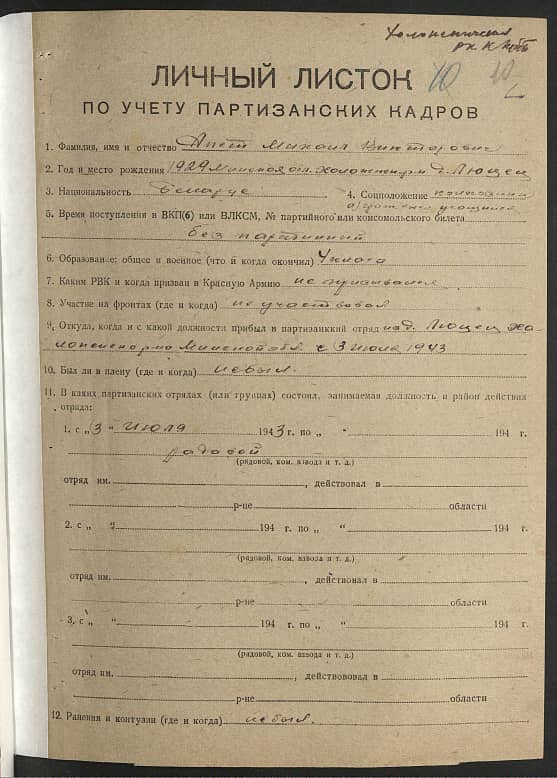 Холопеническ
РК КП(б)Б
ЛИЧНЫЙ ЛИСТОК 10 10
ПО УЧЕТУ ПАРТИЗАНСКИХ КАДРОВ
1. Фамилия, имя и отчество Михаил Викторович
2. Год и место рождения 1929 Минская обл. Холопен д. Люцец
3. Национальность беларус
4. Соцположение
учащийся
5. Время поступления в ВКП(б) или ВЛКСМ, № партийного или комсомольского билета
без партийный
6. Образование: общее и военное (что и когда окончил) 4 класа
7. Каким РВК и когда призван в Красную Армию не призывался
8. Участие на фронтах (где и когда) не участвовал
9. Откуда, когда и с какой должности прибыл в партизанский отряд Люцец Хо-
Минской обл. с 3 июля 1943
10. Был ли в плену (где и когда) небыл.
11. В каких партизанских отрядах (или группах) состоял, занимаемая должность и район действия
отряда:
1. с „3 " июля 1943 г. по „ " 194 г.
рядовой
(рядовой, ком. взвода и т. д.)
отряд им. , действовал в
р-не области
2. с „ " 194 г. по „ " 194 г.
(рядовой, ком. взвода и т. д.)
отряд им. , действовал в
р-не области
3. с „ " 194 г. по „ " 194 г.
(рядовой, ком. взвода и т. д.)
отряд им. , действовал в
р-не области
12. Ранения и контузии (где и когда) небыл.